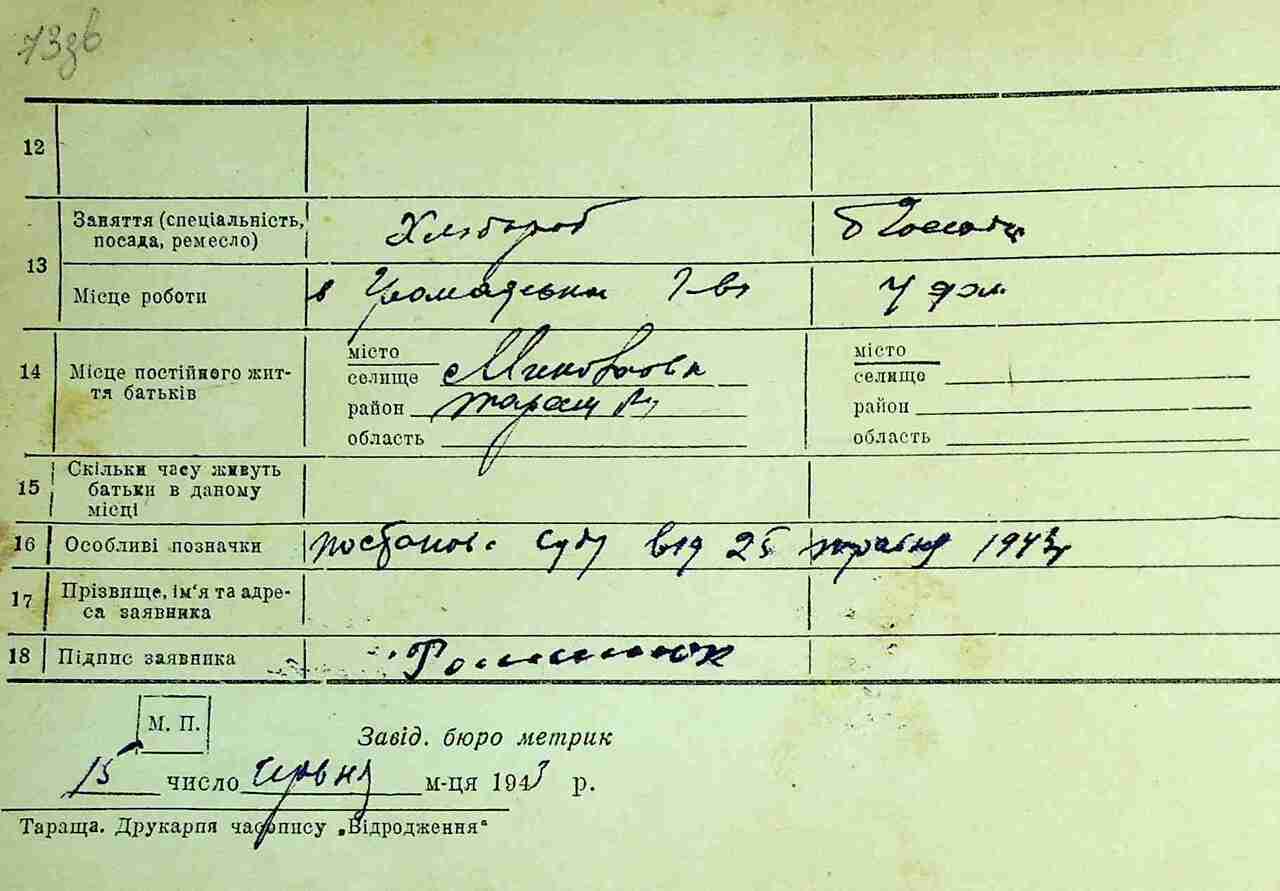 73зв
12
13 Заняття (спеціальність, посада, ремесло) Хлібороб
Місце роботи в Громадськім
14 Місце постійного життя батьків
місто місто
селище селище
район Таращ район
область область
15 Скільки часу живуть батьки в даному місці
16 Особливі позначки постанов. суду від 25 травня 1943 р
17 Прізвище, ім'я та адреса заявника
18 Підпис заявника
М. П.
Завід. бюро метрик
15 число червня м-ця 1943 р.
Тараща. Друкарня часопису „Відродження"